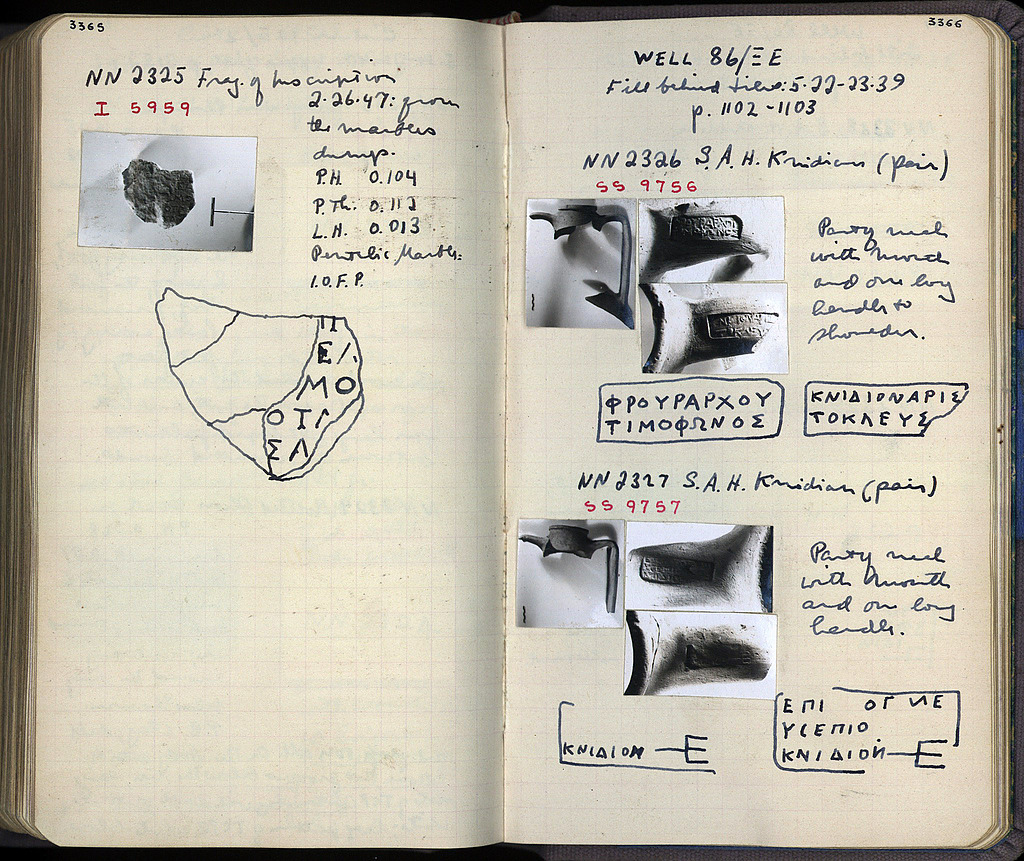 3365
NN 2325 Frag. of Inscription
I 5959
2-26-47: from
the marbles
dump.
P.H. 0.104
P.Th. 0.112
L.H. 0.013
Pentelic Marble:
I.O.F.P.
Π
Ε
Μ Ο
Ο Τ Ι
Σ Α
3366
WELL 86/ΞΕ
Fill behind tiles: 5-22-23-39
p. 1102-1103
NN 2326 S.A.H. Knidian (pair)
SS 9756
Party neck
with mouth
and one long
handle to
shoulder.
ΦΡΟΥΡΑΡΧΟΥ
ΤΙΜΟΦΩΝΟΣ
ΚΝΙΔΙΟΝΑΡΙΣ
ΤΟΚΛΕΥΣ
NN 2327 S.A.H. Knidian (pair)
SS 9757
Party neck
with mouth
and one long
handle.
ΚΝΙΔΙΟΝ
ΕΠΙ ΟΓ ΝΕ
ΥϹΕΠΙΟ
ΚΝΙΔΙΟΝ